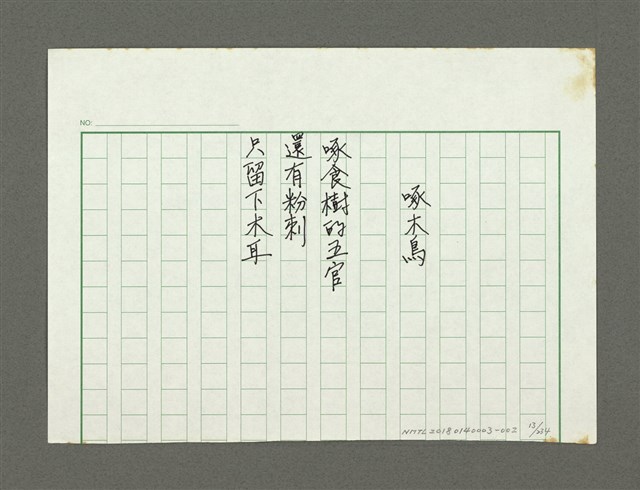 NO:
啄木鳥
啄食樹的五官
還有粉刺
只留下木耳
NMTL20180140003-002
13/234